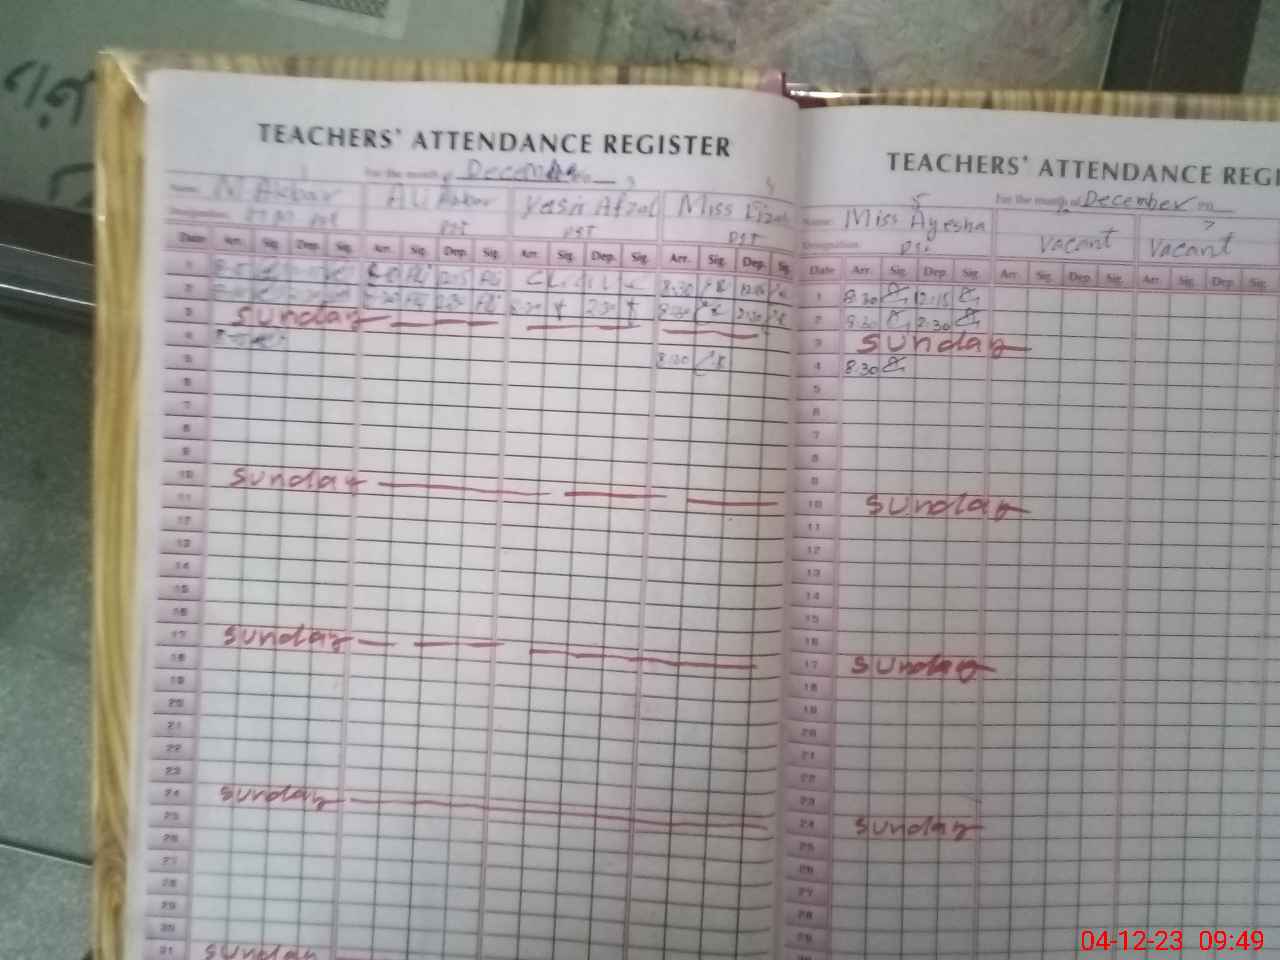 TEACHERS' ATTENDANCE REGISTER
For the month of December
Name M Akbar Ali Akbar Yasir Afzal Miss
Designation PST PST PST
Date Arr. Sig. Dep. Sig. Arr. Sig. Dep. Sig. Arr. Sig. Dep. Sig. Arr. Sig. Dep. Sig.
1 12:15 8:30
2 2:30 2:30 8:30 2:30
3 Sunday
4
5 8:30
6
7
8
9
10 Sunday
11
12
13
14
15
16
17 Sunday
18
19
20
21
22
23
24 Sunday
25
26
27
28
29
30
31 Sunday
TEACHERS' ATTENDANCE REGI
5 7
For the month of December
Name: Miss Ayesha Vacant Vacant
Designation PST
Date Arr. Sig. Dep. Sig. Arr. Sig. Dep. Sig. Arr. Sig. Dep. Sig.
1 8:30 12:15
2 8:30 2:30
3 Sunday
4 8:30
5
6
7
8
9
10 Sunday
11
12
13
14
15
16
17 Sunday
18
19
20
21
22
23
24 Sunday
25
26
27
28
29
04-12-23 09:49